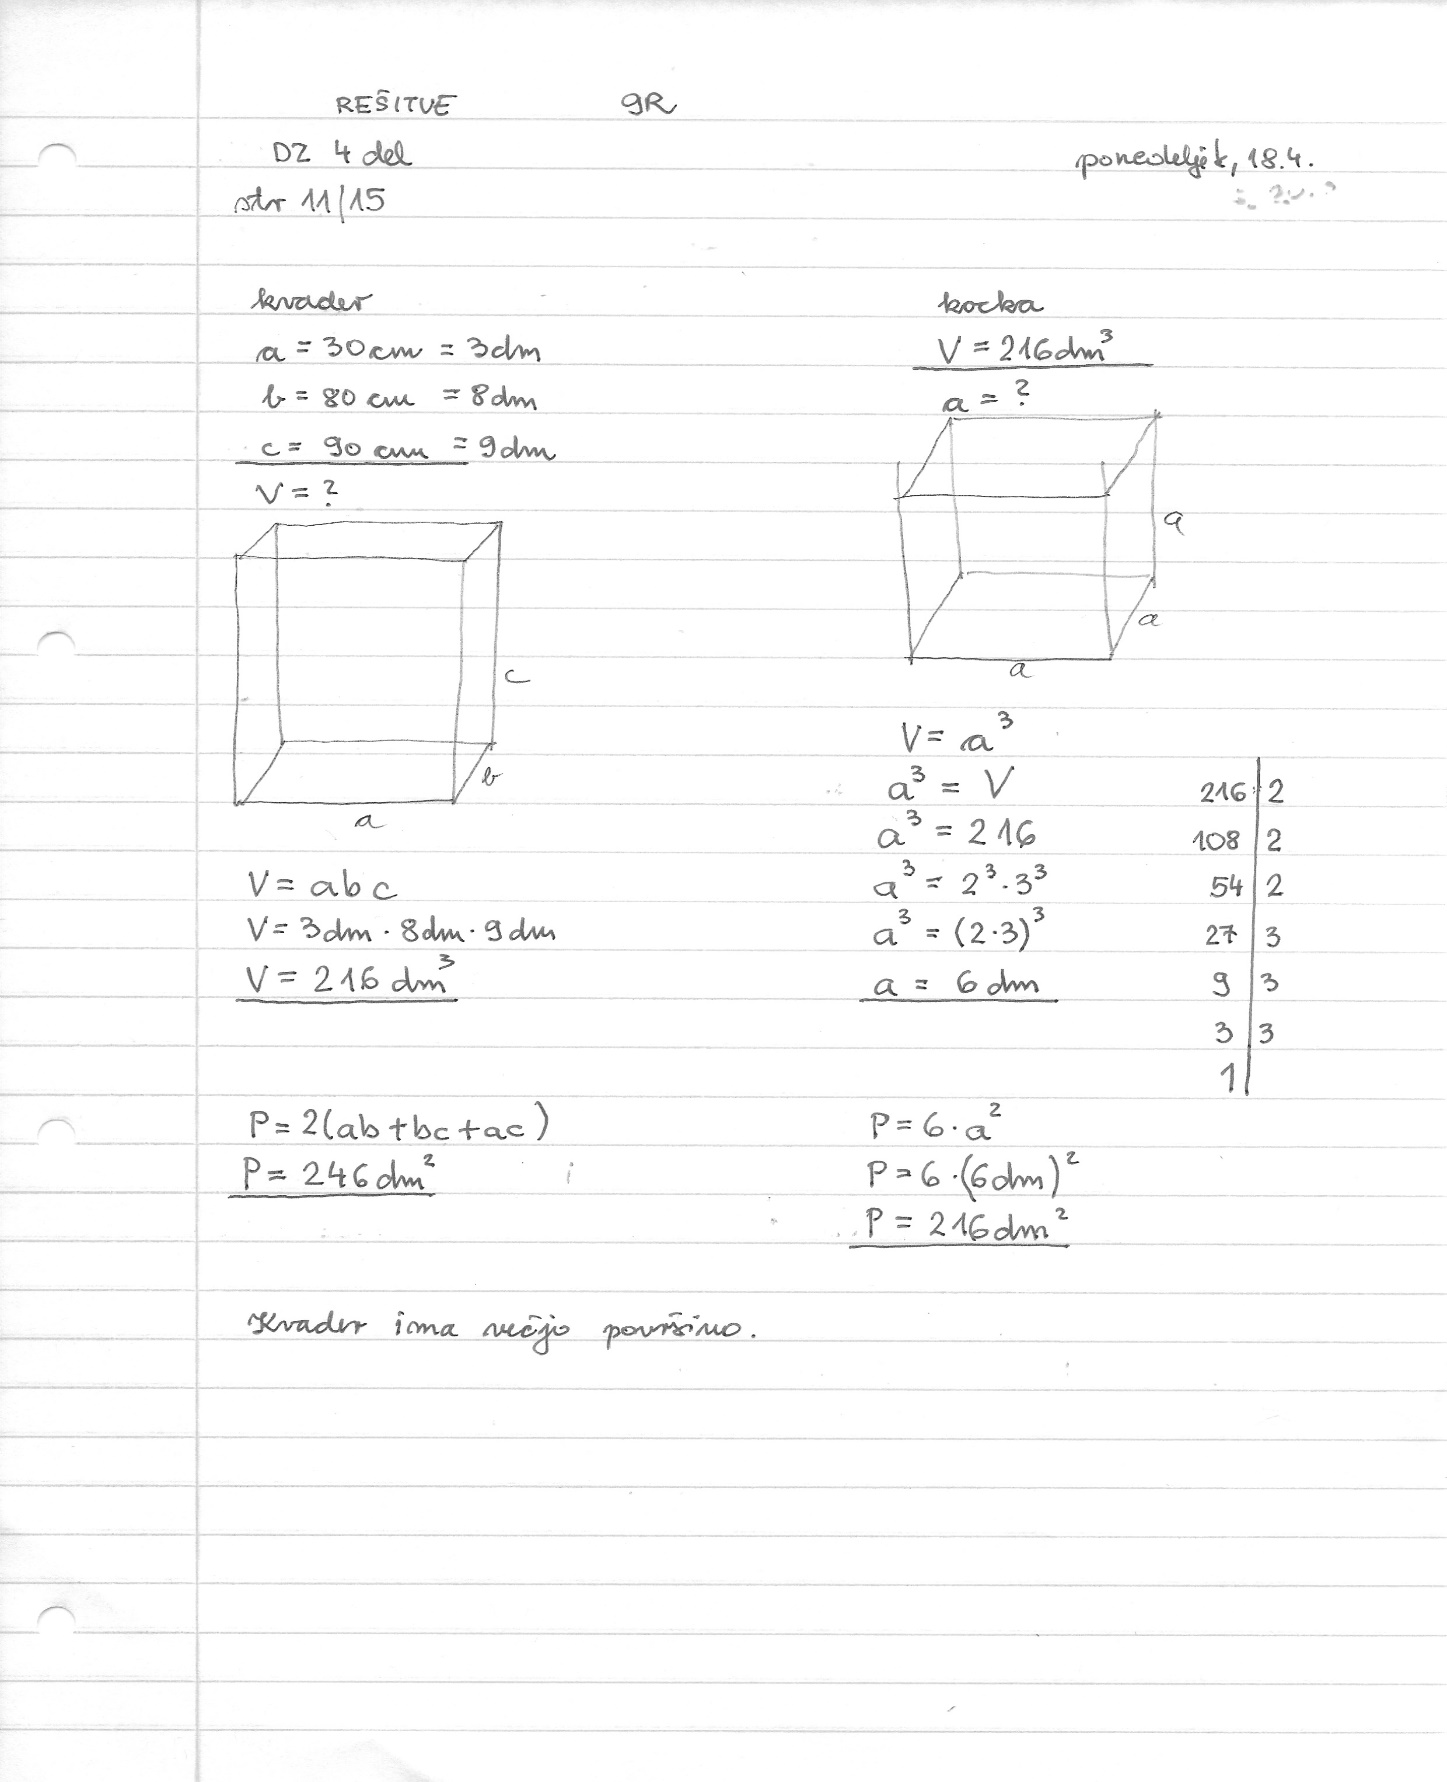 REŠITVE 9R
DZ 4 del
ponedeljek, 18.4.
str 11/15
kvader
a = 30cm = 3dm
b = 80 cm = 8dm
c = 90 cm = 9dm
V = ?
c
b
a
V = abc
V = 3dm · 8dm · 9dm
V = 216 dm³
P = 2(ab+bc+ac)
P = 246dm²
kocka
V = 216dm³
a = ?
a
a
a
V = a³
a³ = V
a³ = 216
a³ = 2³·3³
a³ = (2·3)³
a = 6dm
216 | 2
108 | 2
54 | 2
27 | 3
9 | 3
3 | 3
1 |
P = 6·a²
P = 6·(6dm)²
P = 216dm²
Kvader ima večjo površino.